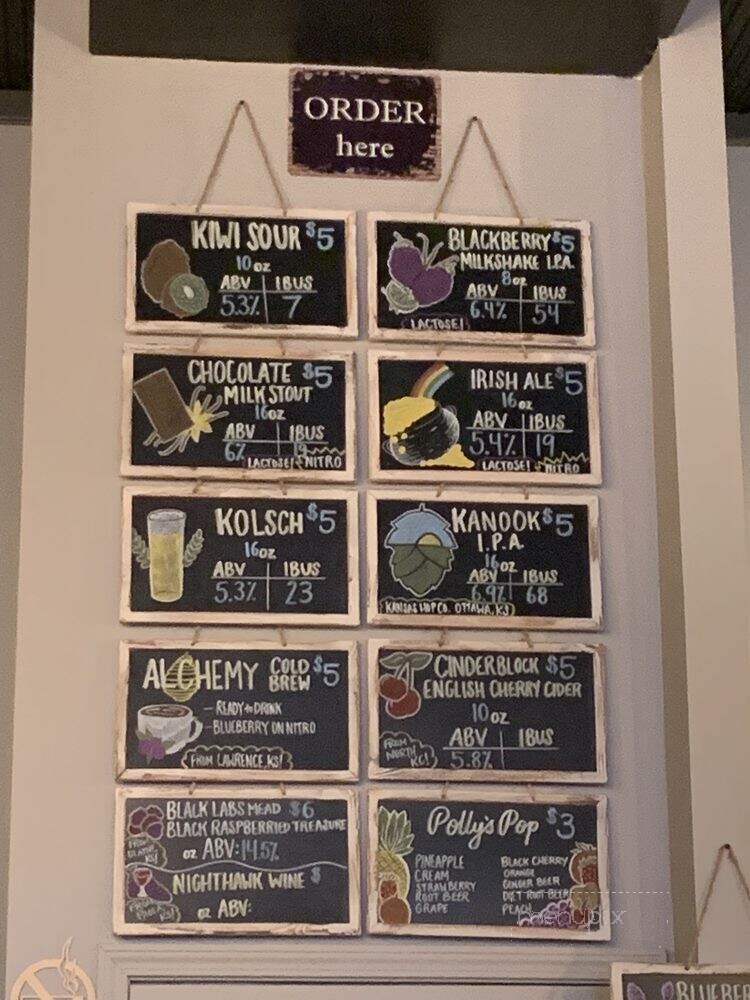 ORDER
here
KIWI SOUR $5
10 oz
ABV IBUS
5.3% 7
BLACKBERRY $5
MILKSHAKE I.P.A.
8oz
ABV IBUS
6.4% 54
LACTOSE!
CHOCOLATE $5
MILK STOUT
16oz
ABV IBUS
6% 19
LACTOSE! + NITRO
IRISH ALE $5
16 oz
ABV IBUS
5.4% 19
LACTOSE! + NITRO
KOLSCH $5
16oz
ABV IBUS
5.3% 23
KANOOK $5
I.P.A.
16 oz
ABV IBUS
6.9% 68
KANSAS HOP CO. OTTAWA, KS
ALCHEMY COLD BREW $5
- READY to DRINK
- BLUEBERRY ON NITRO
FROM LAWRENCE, KS!
CINDERBLOCK $5
ENGLISH CHERRY CIDER
10 oz
ABV IBUS
5.8%
FROM
NORTH
KC!
BLACK LABS MEAD $6
BLACK RASPBERRIED TREASURE
oz ABV: 14.5%
FROM
KS!
NIGHTHAWK WINE $
oz ABV:
FROM
KS!
Polly's Pop $3
PINEAPPLE
CREAM
STRAWBERRY
ROOT BEER
GRAPE
BLACK CHERRY
ORANGE
GINGER BEER
DIET ROOT BEER
PEACH
menupix